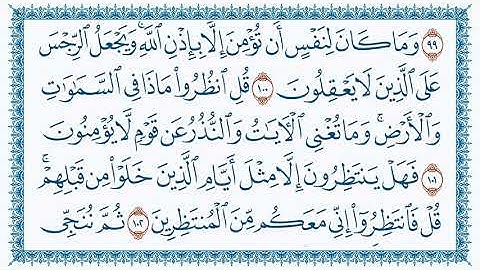 ۝٩٩ وَمَا كَانَ لِنَفْسٍ أَن تُؤْمِنَ إِلَّا بِإِذْنِ ٱللَّهِ ۚ وَيَجْعَلُ ٱلرِّجْسَ
عَلَى ٱلَّذِينَ لَا يَعْقِلُونَ ۝١٠٠ قُلِ ٱنظُرُوا۟ مَاذَا فِى ٱلسَّمَـٰوَٰتِ
وَٱلْأَرْضِ ۚ وَمَا تُغْنِى ٱلْـَٔايَـٰتُ وَٱلنُّذُرُ عَن قَوْمٍ لَّا يُؤْمِنُونَ
۝١٠١ فَهَلْ يَنتَظِرُونَ إِلَّا مِثْلَ أَيَّامِ ٱلَّذِينَ خَلَوْا۟ مِن قَبْلِهِمْ ۚ
قُلْ فَٱنتَظِرُوٓا۟ إِنِّى مَعَكُم مِّنَ ٱلْمُنتَظِرِينَ ۝١٠٢ ثُمَّ نُنَجِّى